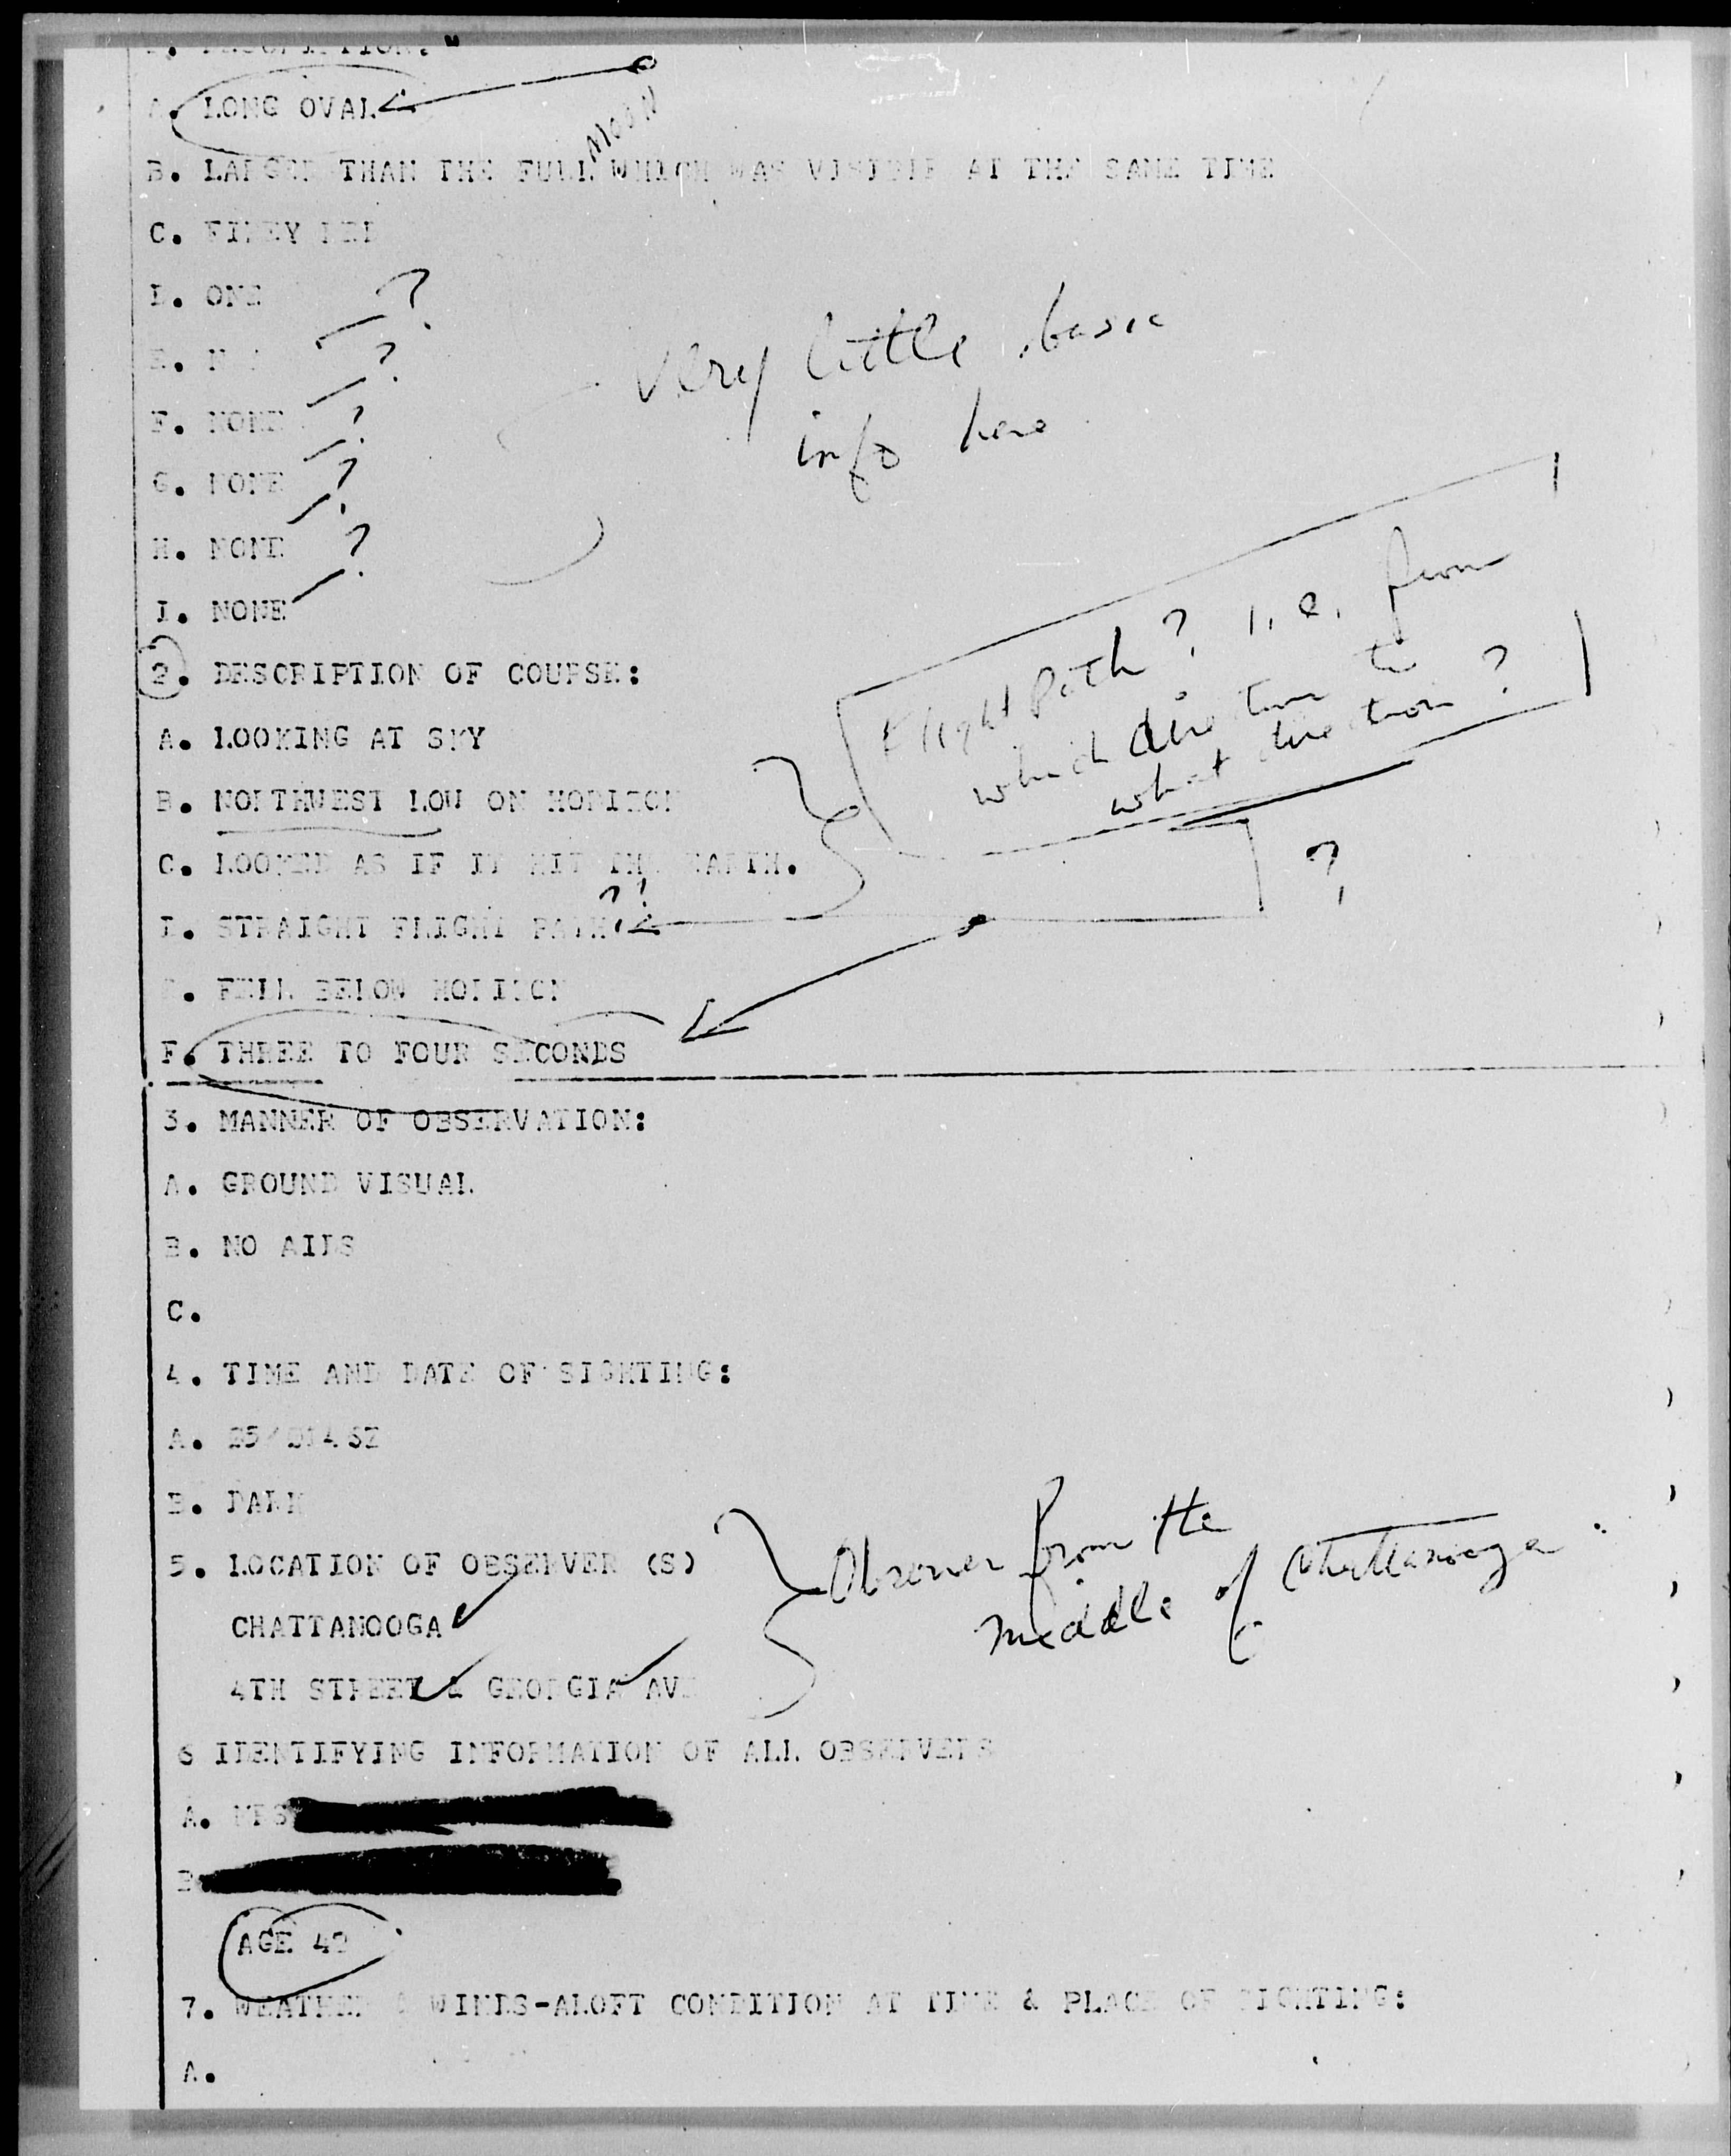 DESCRIPTION:
A. LONG OVAL
MOON
B. LARGER THAN THE FULL WHICH WAS VISIBLE AT THE SAME TIME
C. FIREY RED
D. ONE
?
E.
?
F. NONE
?
Very little basic
info here
G. NONE
?
H. NONE
?
I. NONE
2. DESCRIPTION OF COURSE:
Flight Path? i.e. from
which direction to
what direction?
A. LOOKING AT SKY
B. NORTHWEST LOW ON HORIZON
C. LOOKED AS IF IT HIT THE EARTH.
?
D. STRAIGHT FLIGHT PATH
E. FELL BELOW HORIZON
F. THREE TO FOUR SECONDS
3. MANNER OF OBSERVATION:
A. GROUND VISUAL
B. NO AIDS
C.
4. TIME AND DATE OF SIGHTING:
A.
B. DARK
5. LOCATION OF OBSERVER (S)
Observer from the
middle of Chattanooga
CHATTANOOGA
4TH STREET & GEORGIA AVE
6 IDENTIFYING INFORMATION OF ALL OBSERVERS
A. MRS
B.
AGE
7. WEATHER & WINDS-ALOFT CONDITION AT TIME & PLACE OF SIGHTING:
A.